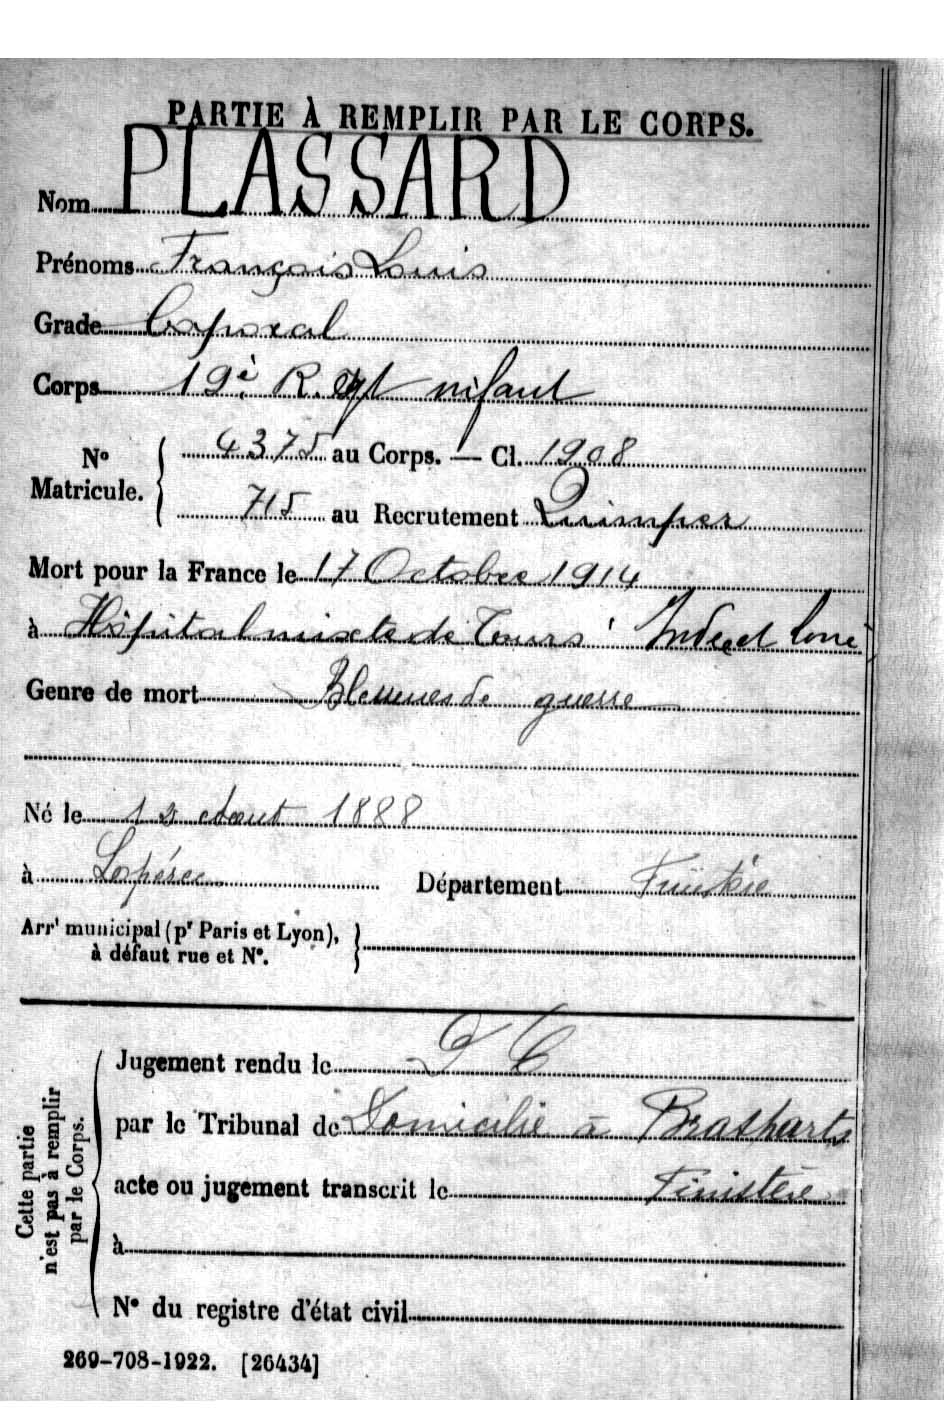 PARTIE À REMPLIR PAR LE CORPS.
Nom PLASSARD
Prénoms François Louis
Grade Caporal
Corps 19è R. d'Infant
N° Matricule. 4375 au Corps. — Cl. 1908
715 au Recrutement Quimper
Mort pour la France le 17 Octobre 1914
à Hôpital mixte de Tours Indre et Loire
Genre de mort Blessures de guerre
Né le Aout 1888
à Lopérec Département Finistère
Arrt municipal (pr Paris et Lyon),
à défaut rue et N°.
Cette partie n'est pas à remplir par le Corps.
Jugement rendu le
par le Tribunal de Domicilié à Brasparts
acte ou jugement transcrit le Finistère
à
N° du registre d'état civil
269-708-1922. [26434]